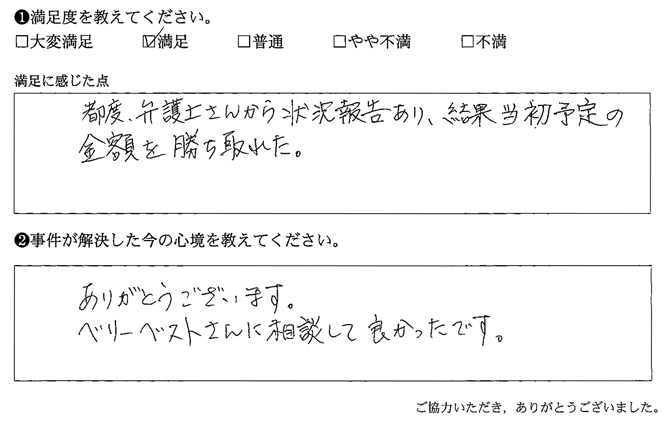 ❶満足度を教えてください。
□大変満足 ☑満足 □普通 □やや不満 □不満
満足に感じた点
都度、弁護士さんから状況報告あり、結果当初予定の
金額を勝ち取れた。
❷事件が解決した今の心境を教えてください。
ありがとうございます。
ベリーベストさんに相談して良かったです。
ご協力いただき，ありがとうございました。